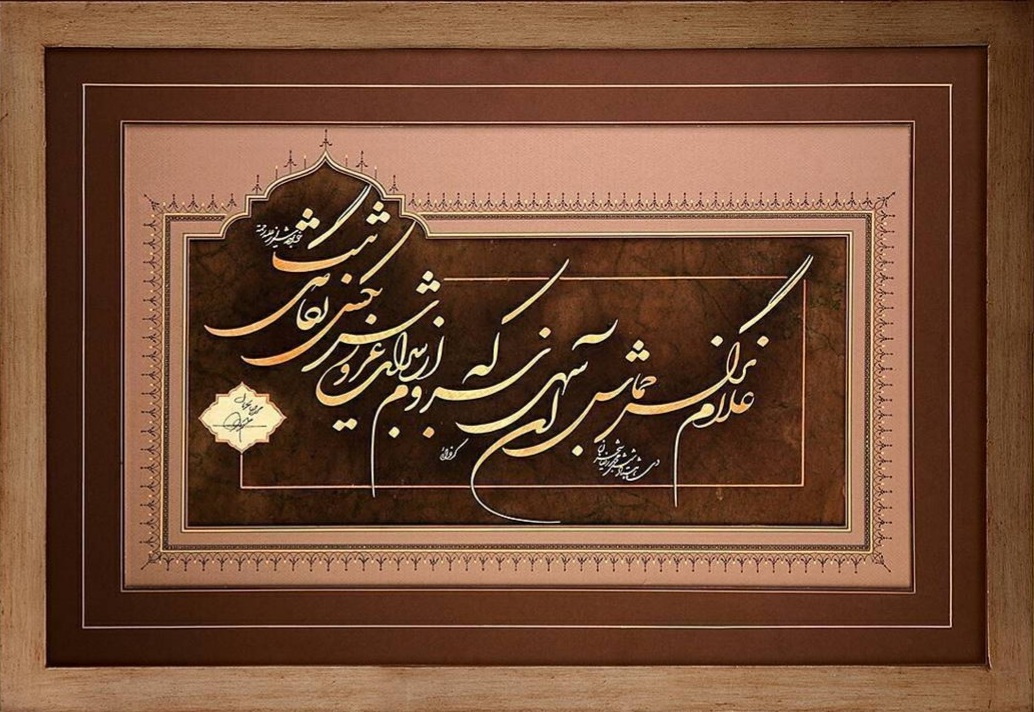 غلام نرگس جماش آن سهی سروم
که از شراب غرورش بکس نگاهی نیست